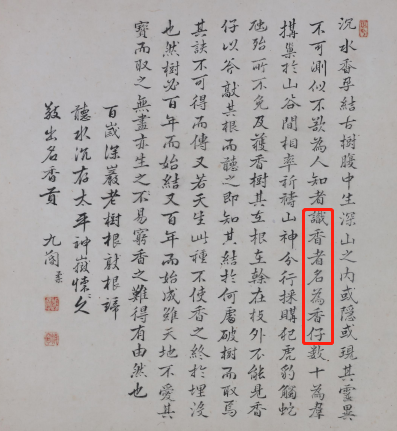 沉水香孕結古樹腹中生深山之内或隱或現其靈異
不可測似不欲為人知者識香者名為香仔數十為羣
搆巢於山谷間相率祈禱山神分行採購犯虎豹觸蛇
虺殆所不免及獲香樹其在根在幹在枝外不能見香
仔以斧敲其根而聽之即知其結於何處破樹而取焉
其訣不可得而傳又若天生此種不使香之終於埋沒
也然樹必百年而始結又百年而始成雖天地不愛其
寶而取之無盡亦生之不易窮香之難得有由然也
百歲深巖老樹根敲根諦
聽水沉存太平神嶽懷久
敲出名香貢 九